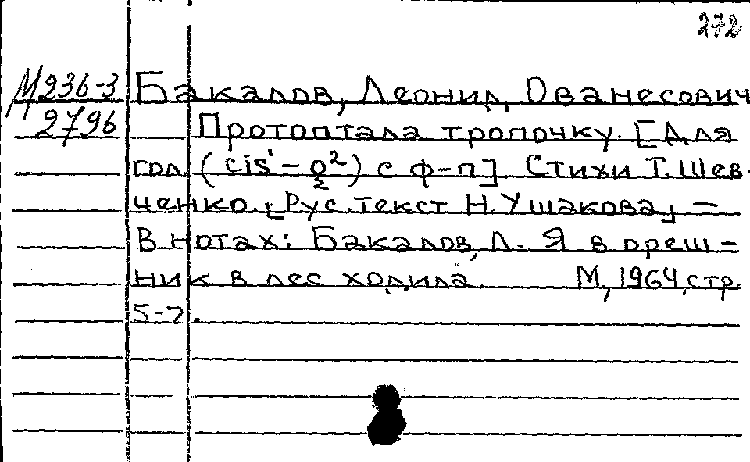 272
М 236-3 Бакалов, Леонид Ованесович
2796 Протоптала тропочку. [Для
гол. (cis¹ - g²) с ф-п]. Стихи Т. Шев-
ченко. [Рус. текст Н. Ушакова] =
В нотах: Бакалов, Л. Я в ореш-
ник в лес ходила. М, 1964, стр.
5-7.